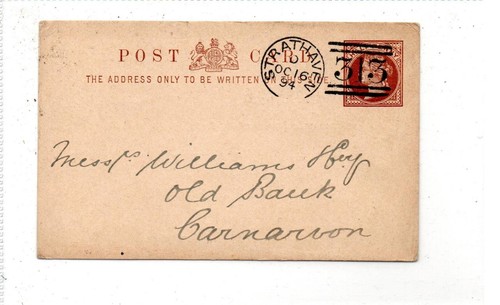 POST CARD
THE ADDRESS ONLY TO BE WRITTEN
STRATHAVEN
OC 16
94
313
Messrs Williams & Coy
Old Bank
Carnarvon